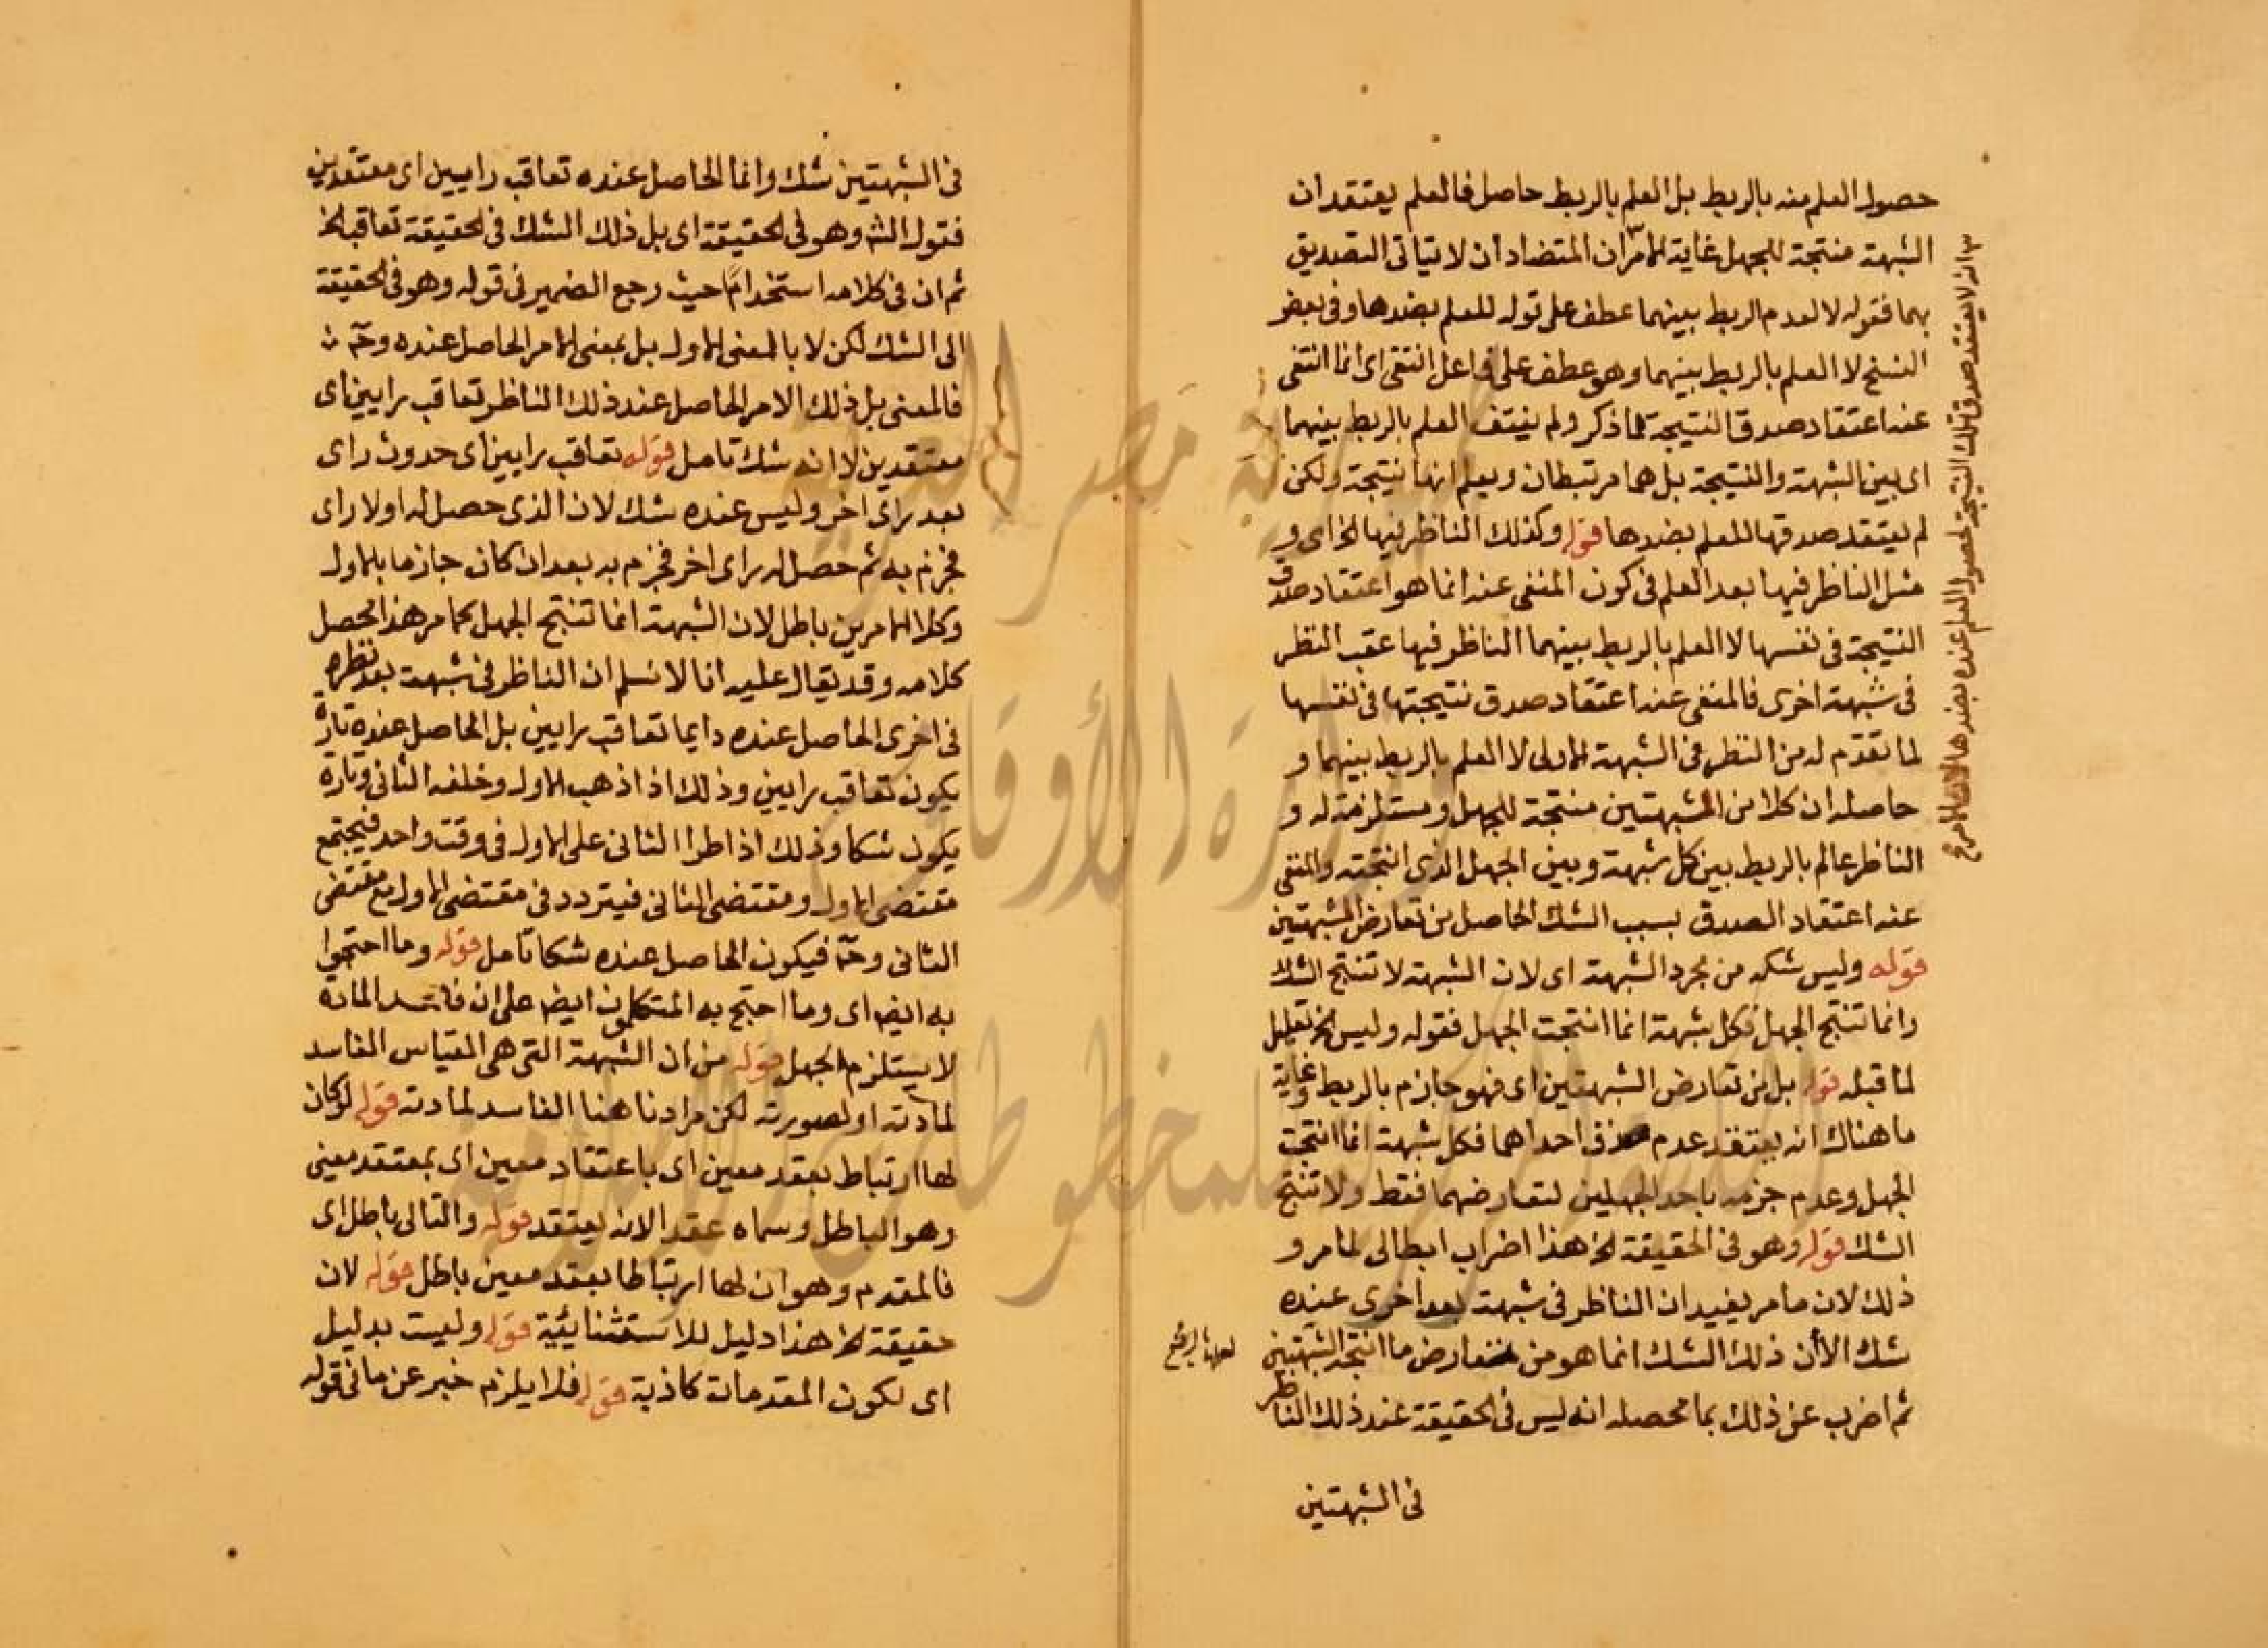 حصول العلم منه بالربط بل العلم بالربط حاصل فالعلم يعتقد ان
الشبهة منتجة للجهل غاية الامر ان المتضادان لا يتاتى التصديق
بهما فقوله لا لعدم الربط بينهما عطف على قوله للعلم بضدها وفي بعض
النسخ لا العلم بالربط بينهما وهو عطف على فاعل انتفى اى انما انتفى
عنه اعتقاد صدق النتيجة لما ذكر ولم ينتف العلم بالربط بينهما
اى بين الشبهة والنتيجة بل هما مرتبطان ويعلم انها نتيجة ولكن
لم يعتقد صدقها للعلم بضدها قوله وكذلك الناظر فيها الخ اى و
مثل الناظر فيها بعد العلم فى كون المنفى عنه انما هو اعتقاد صدق
النتيجة فى نفسها لا العلم بالربط بينهما الناظر فيها عقب النظر
فى شبهة اخرى فالمنفى عنه اعتقاد صدق نتيجتها فى نفسها
لما تقدم له من النظر فى الشبهة الاولى لا العلم بالربط بينهما و
حاصله ان كلا من الشبهتين منتجة للجهل ومستلزمة له و
الناظر عالم بالربط بين كل شبهة وبين الجهل الذى انتجته والمنفى
عنه اعتقاد الصدق بسبب الشك الحاصل من تعارض الشبهتين
قوله وليس شكه من مجرد الشبهة اى لان الشبهة لا تنتج الشك
وانما تنتج الجهل فكل شبهة انما انتجت الجهل فقوله وليس الخ تعليل
لما قبله قوله بل من تعارض الشبهتين اى فهو جازم بالربط وغاية
ما هناك انه يعتقد عدم صدق احداهما فكل شبهة انما انتجت
الجهل وعدم جزمه باحد الجهلين لتعارضهما فقط ولا تنتج
الشك قوله وهو فى الحقيقة الخ هذا اضراب ابطالى لما مر و
ذلك لان ما مر يفيد ان الناظر فى شبهة بعد اخرى عنده
شك الا أن ذلك الشك انما هو من تعارض ما انتجته الشبهتين
ثم اضرب عن ذلك بما محصله انه ليس فى الحقيقة عند ذلك الناظر
فى الشبهتين
انه لا يعتقد صدق تلك النتيجة لحصول العلم عنده بضدها
فى الشبهتين شك وانما الحاصل عنده تعاقب رايين اى معتقدين
فقول الش وهو فى الحقيقة اى بل ذلك الشك فى الحقيقة تعاقب الخ
ثم ان فى كلامه استخداما حيث رجع الضمير فى قوله وهو فى الحقيقة
الى الشك لكن لا بالمعنى الاول بل بمعنى الامر الحاصل عنده وح
فالمعنى بل ذلك الامر الحاصل عند ذلك الناظر تعاقب رايين اى
معتقدين لا انه شك تامل قوله تعاقب رايين اى حدوث راى
بعد راى اخر وليس عنده شك لان الذى حصل له اولا راى
فجزم به ثم حصل له راى اخر فجزم به بعد ان كان جازما بالاول
وكلا الامرين باطل لان الشبهة انما تنتج الجهل كما مر هذا محصل
كلامه وقد يقال عليه انا لا نسلم ان الناظر فى شبهة بعد نظره
فى اخرى الحاصل عنده دايما تعاقب رايين بل الحاصل عنده تارة
يكون تعاقب رايين وذلك اذا ذهب الاول وخلفه الثانى وتارة
يكون شكا وذلك اذا طرا الثانى على الاول فى وقت واحد فيجتمع
مقتضى الاول ومقتضى الثانى فيتردد فى مقتضى الاول مع مقتضى
الثانى وح فيكون الحاصل عنده شكا تامل قوله وما احتجوا
به ايض اى وما احتج به المتكلمون ايض على ان فاسد المادة
لا يستلزم الجهل قوله من ان الشبهة التى هى القياس الفاسد
لمادته او لصورته لكن مرادنا هنا الفاسد لمادته قوله لو كان
لها ارتباط بعقد معين اى باعتقاد معين اى بمعتقد معين
وهو الباطل وسماه عقدا لانه يعتقد قوله والتالى باطل اى
فالمقدم وهو ان لها ارتباطا بعقد معين باطل قوله لان
حقيقة الخ هذا دليل للاستثنائية قوله وليست بدليل
اى لكون المقدمات كاذبة قوله فلا يلزم خبر عن ما فى قوله
جمهورية مصر العربية
وزارة الأوقاف